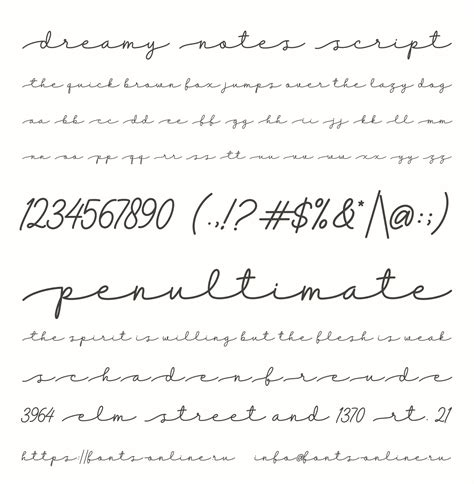 dreamy notes script
the quick brown fox jumps over the lazy dog
aa bb cc dd ee ff gg hh ii jj kk ll mm
nn oo pp qq rr ss tt uu vv ww xx yy zz
1234567890 (.,!?#$%&*/|\@:;)
penultimate
the spirit is willing but the flesh is weak
schadenfreude
3964 elm street and 1370 rt. 21
https://fonts-online.ru info@fonts-online.ru